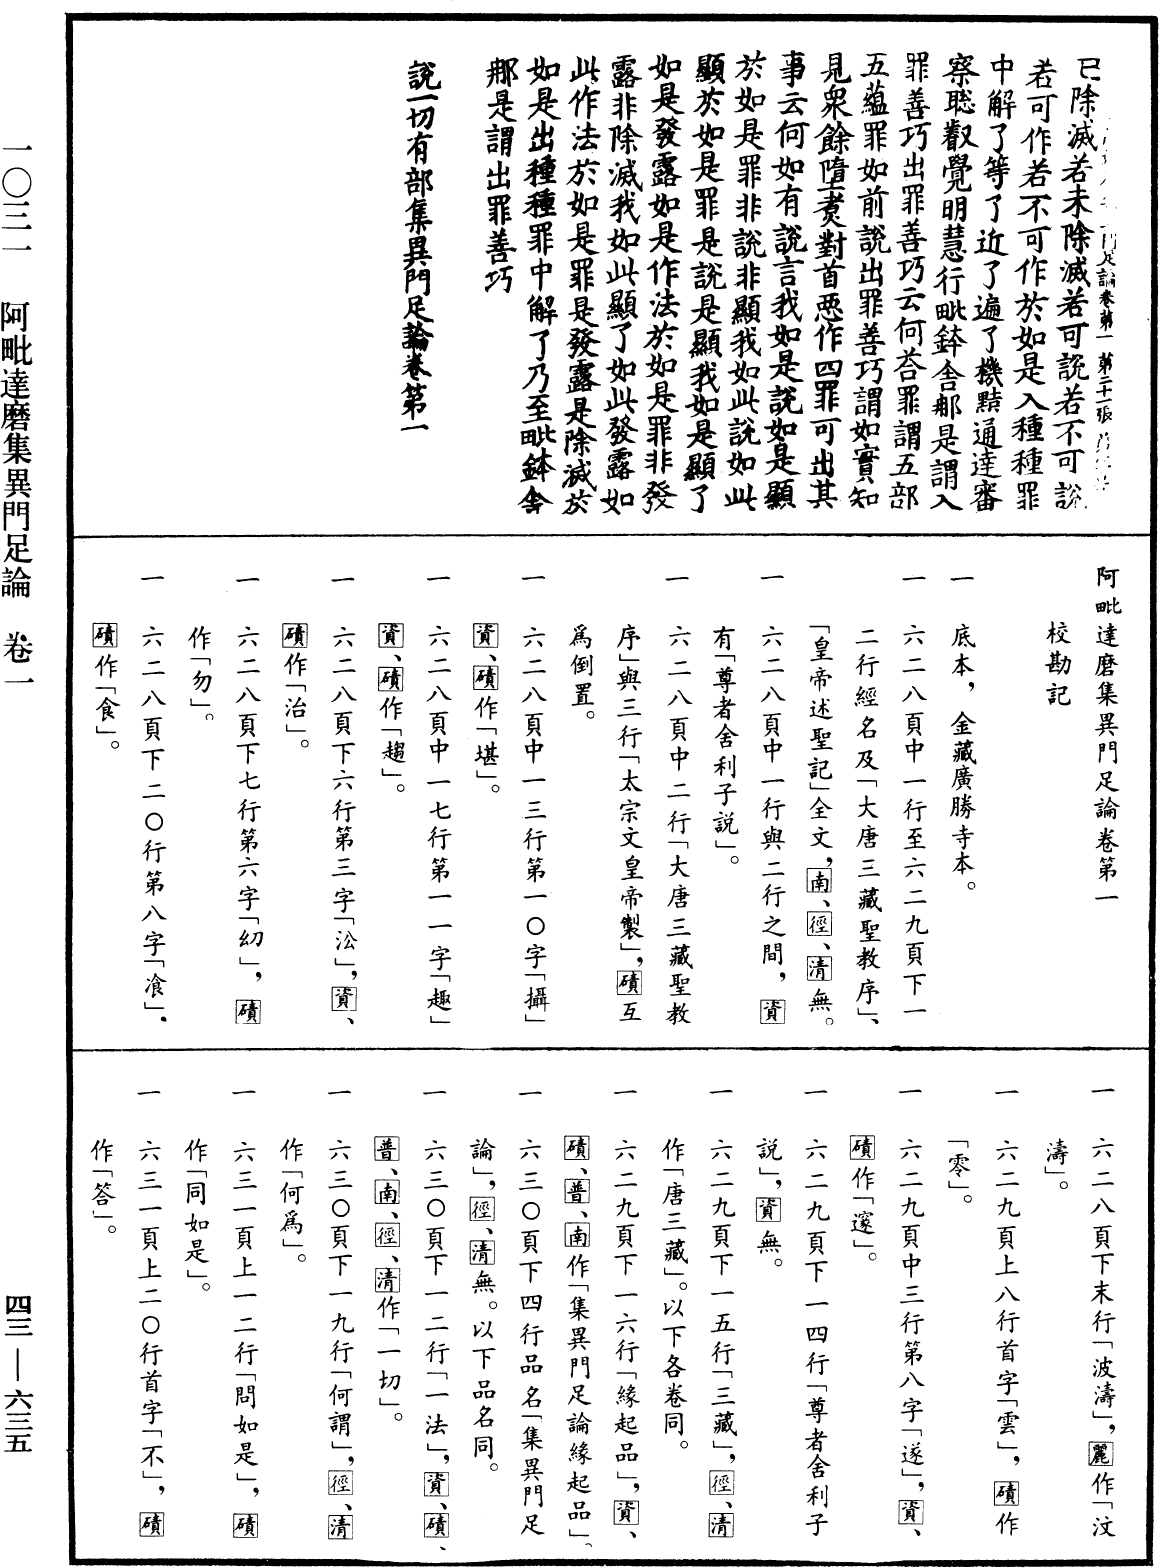 一〇三一　阿毗達磨集異門足論　卷一
四三—六三五
足論卷第一　第二十一張
已除滅若未除滅若可說若不可說
若可作若不可作於如是入種種罪
中解了等了近了遍了機黠通達審
察聦叡覺明慧行毗鉢舍那是謂入
罪善巧出罪善巧云何荅罪謂五部
五蘊罪如前說出罪善巧謂如實知
見衆餘墮煑對首惡作四罪可出其
事云何如有說言我如是說如是顯
於如是罪非說非顯我如此說如此
顯於如是罪是說是顯我如是顯了
如是發露如是作法於如是罪非發
露非除滅我如此顯了如此發露如
此作法於如是罪是發露是除滅於
如是出種種罪中解了乃至毗鉢舍
那是謂出罪善巧
說一切有部集異門足論卷第一
阿毗達磨集異門足論卷第一
校勘記
一　底本，金藏廣勝寺本。
一　六二八頁中一行至六二九頁下一
二行經名及「大唐三藏聖教序」、
「皇帝述聖記」全文，南、徑、清無。
一　六二八頁中一行與二行之間，資
有「尊者舍利子說」。
一　六二八頁中二行「大唐三藏聖教
序」與三行「太宗文皇帝製」，磧互
爲倒置。
一　六二八頁中一三行第一〇字「攝」
資、磧作「堪」。
一　六二八頁中一七行第一一字「趣」
資、磧作「趨」。
一　六二八頁下六行第三字「沿」，資、
磧作「治」。
一　六二八頁下七行第六字「幻」，磧
作「勿」。
一　六二八頁下二〇行第八字「飡」．
磧作「食」。
一　六二八頁下末行「波濤」，麗作「汶
濤」。
一　六二九頁上八行首字「雲」，磧作
「零」。
一　六二九頁中三行第八字「遂」，資、
磧作「邃」。
一　六二九頁下一四行「尊者舍利子
說」，資無。
一　六二九頁下一五行「三藏」，徑、清
作「唐三藏」。以下各卷同。
一　六二九頁下一六行「緣起品」，資、
磧、普、南作「集異門足論緣起品」。
一　六三〇頁下四行品名「集異門足
論」，徑、清無。以下品名同。
一　六三〇頁下一二行「一法」，資、磧、
普、南、徑、清作「一切」。
一　六三〇頁下一九行「何謂」，徑、清
作「何爲」。
一　六三一頁上一二行「問如是」，磧
作「同如是」。
一　六三一頁上二〇行首字「不」，磧
作「答」。